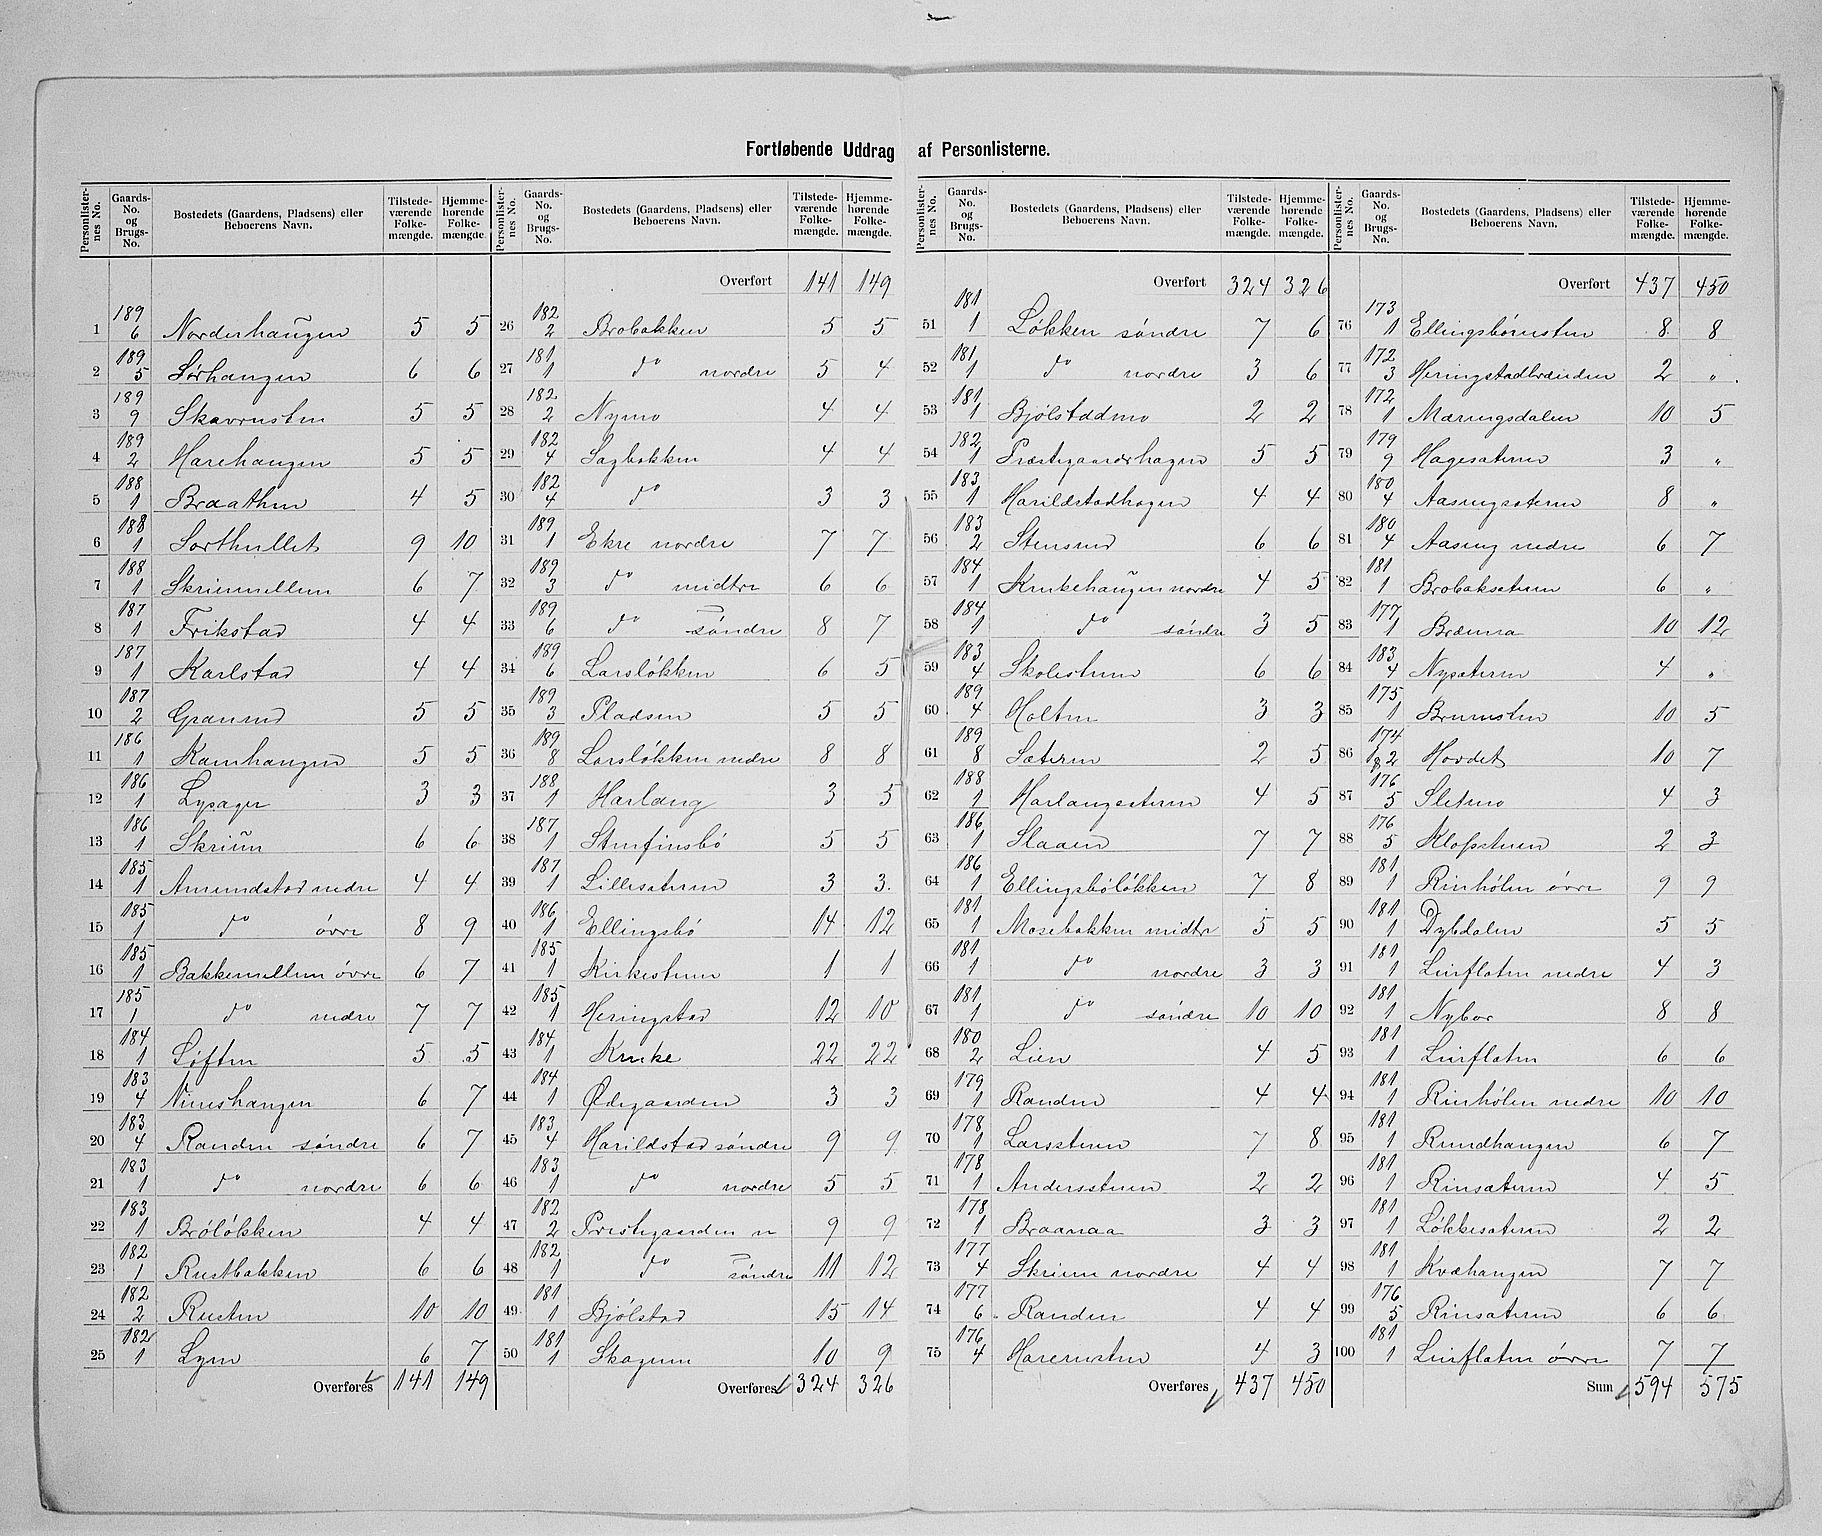 Fortløbende Uddrag af Personlisterne.
Personlister-nes No. Gaards-No. og Brugs-No. Bostedets (Gaardens, Pladsens) eller Beboerens Navn. Tilstede-værende Folke-mængde. Hjemme-hørende Folke-mængde.
1 189 6 Norderhaugen 5 5
2 189 5 Sørhaugen 6 6
3 189 9 Skavrusten 5 5
4 189 2 Harehaugen 5 5
5 188 1 Braathen 4 5
6 188 1 Sorthullet 9 10
7 188 1 Skriumellem 6 7
8 187 1 Frikstad 4 4
9 187 1 Karlstad 4 4
10 187 2 Graurud 5 5
11 186 1 Kamhaugen 5 5
12 186 1 Lysager 3 3
13 186 1 Skriun 6 6
14 185 1 Amundstad nedre 4 4
15 185 1 do øvre 8 9
16 185 1 Bakkemellem øvre 6 7
17 185 1 do nedre 7 7
18 184 1 Loften 5 5
19 183 4 Nineshaugen 6 7
20 183 4 Randen søndre 6 7
21 183 1 do nordre 6 6
22 183 1 Broløkken 4 4
23 182 1 Rustbakken 6 6
24 182 2 Rusten 10 10
25 182 1 Lyen 6 7
Overføres 141 149
Personlister-nes No. Gaards-No. og Brugs-No. Bostedets (Gaardens, Pladsens) eller Beboerens Navn. Tilstede-værende Folke-mængde. Hjemme-hørende Folke-mængde.
Overført 141 149
26 182 2 Brobakken 5 5
27 181 1 do nordre 5 4
28 182 2 Nymo 4 4
29 182 4 Sagbakken 4 4
30 182 4 do 3 3
31 189 1 Ekre nordre 7 7
32 189 3 do midtre 6 6
33 189 6 do søndre 8 7
34 189 6 Larsløkken 6 5
35 189 3 Pladsen 5 5
36 189 8 Larsløkken nedre 8 8
37 188 1 Harlaug 3 5
38 187 1 Stenfinsbø 5 5
39 187 1 Lillesæteren 3 3
40 186 1 Ellingsbø 14 12
41 185 1 Kirkestuen 1 1
42 185 1 Heringstad 12 10
43 184 1 Kruke 22 22
44 184 1 Ødegaarden 3 3
45 183 4 Harildstad søndre 9 9
46 183 1 do nordre 5 5
47 182 2 Prestegaarden n 9 9
48 182 1 do søndre 11 12
49 181 1 Bjølstad 15 14
50 181 1 Skogum 10 9
Overføres 324 326
Personlister-nes No. Gaards-No. og Brugs-No. Bostedets (Gaardens, Pladsens) eller Beboerens Navn. Tilstede-værende Folke-mængde. Hjemme-hørende Folke-mængde.
Overført 324 326
51 181 1 Løkken søndre 7 6
52 181 1 do nordre 3 6
53 181 1 Bjølstadmo 2 2
54 182 1 Præstegaardshagen 5 5
55 183 1 Harildstadhagen 4 4
56 183 2 Stensrud 6 6
57 184 1 Krukehaugen nordre 4 5
58 184 1 do søndre 3 5
59 183 4 Skolestuen 6 6
60 189 4 Holten 3 3
61 189 8 Sæteren 2 5
62 188 1 Harlaugsæteren 4 5
63 186 1 Slaaen 7 7
64 186 1 Ellingsbøløkken 7 8
65 181 1 Mosebakken midtre 5 5
66 181 1 do nordre 3 3
67 181 1 do søndre 10 10
68 180 2 Lien 4 5
69 179 1 Randen 4 4
70 178 1 Larsstuen 7 8
71 178 1 Andersstuen 2 2
72 178 1 Braanaa 3 3
73 177 4 Skriun nordre 4 4
74 177 6 Randen 4 4
75 176 4 Harerusten 4 3
Overføres 437 450
Personlister-nes No. Gaards-No. og Brugs-No. Bostedets (Gaardens, Pladsens) eller Beboerens Navn. Tilstede-værende Folke-mængde. Hjemme-hørende Folke-mængde.
Overført 437 450
76 173 1 Ellingsbørusten 8 8
77 172 3 Heringstadbrænden 2 "
78 172 1 Mæringsdalen 10 5
79 179 9 Hagesæteren 3 "
80 180 4 Aasengsæteren 8 "
81 180 4 Aaseng nedre 6 7
82 181 1 Brobaksæteren 6 "
83 177 1 Brænna 10 12
84 183 4 Nysæteren 4 "
85 175 1 Brurusten 10 5
86 174 1 & 2 Hovdet 10 7
87 176 5 Sletmo 4 3
88 176 5 Klopstuen 2 3
89 181 1 Rinhølen øvre 9 9
90 181 1 Dybdalen 5 5
91 181 1 Leirflaten nedre 4 3
92 181 1 Nybor 8 8
93 181 1 Leirflaten 6 6
94 181 1 Rinhølen nedre 10 10
95 181 1 Rundhaugen 6 7
96 181 1 Rinsæteren 4 5
97 181 1 Løkkesæteren 2 2
98 181 1 Kvæhaugen 7 7
99 176 5 Rinsæteren 6 6
100 181 1 Leirflaten øvre 7 7
Sum 594 575